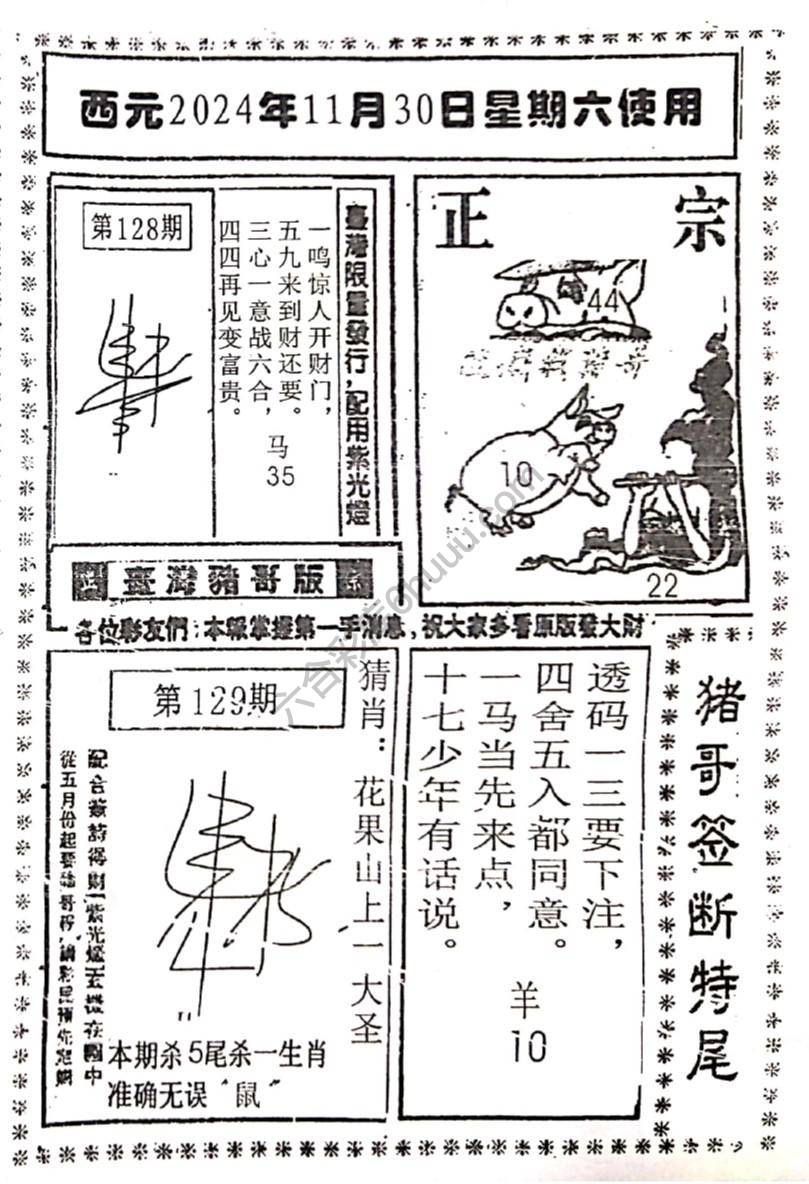 西元2024年11月30日星期六使用
第128期
臺灣限量發行,配用紫光燈
一鸣惊人开财门,
五九来到财还要。
三心一意战六合,
四四再见变富贵。
马
35
正宗
44
10
22
正 臺灣豬哥版 宗
各位彩友們:本報掌握第一手消息,祝大家多看原版發大財
第129期
猜肖:花果山上一大圣
本期杀5尾杀一生肖
准确无误“鼠”
透码一三要下注,
四舍五入都同意。
一马当先来点,
十七少年有话说。
羊
10
猪哥签断特尾